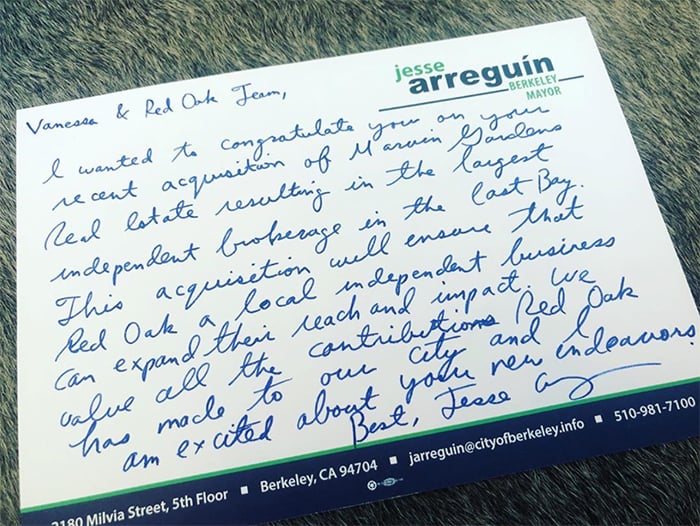 jesse
arreguín
BERKELEY
MAYOR
Vanessa & Red Oak Team,
I wanted to congratulate you on your
recent acquisition of Marvin Gardens
Real Estate resulting in the largest
independent brokerage in the East Bay.
This acquisition will ensure that
Red Oak a local independent business
can expand their reach and impact. We
value all the contributions Red Oak
has made to our city and I
am excited about your new endeavors.
Best, Jesse
2180 Milvia Street, 5th Floor ■ Berkeley, CA 94704 ■ jarreguin@cityofberkeley.info ■ 510-981-7100